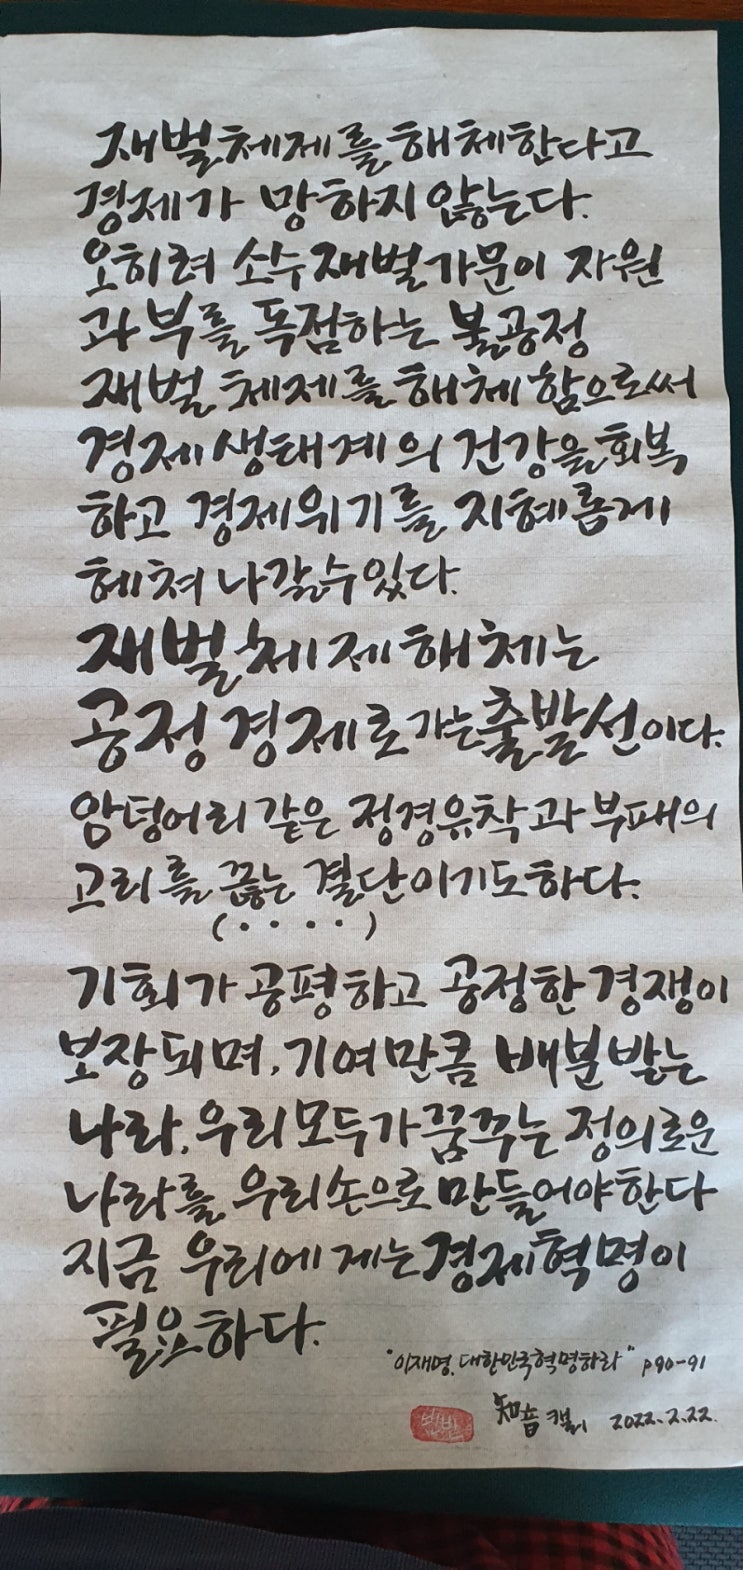 재벌체제를 해체한다고
경제가 망하지 않는다.
오히려 소수 재벌가문이 자원
과 부를 독점하는 불공정
재벌 체제를 해체함으로써
경제생태계의 건강을 회복
하고 경제위기를 지혜롭게
헤쳐 나갈수있다.
재벌체제해체는
공정경제로 가는 출발선이다.
암덩어리 같은 정경유착과 부패의
고리를 끊는 결단이기도하다.
(‥‥)
기회가 공평하고 공정한 경쟁이
보장되며, 기여만큼 배분받는
나라, 우리모두가 꿈꾸는 정의로운
나라를 우리손으로 만들어야한다
지금 우리에게는 경제혁명이
필요하다.
"이재명, 대한민국혁명하라" p90-91
知音 2022.2.22.